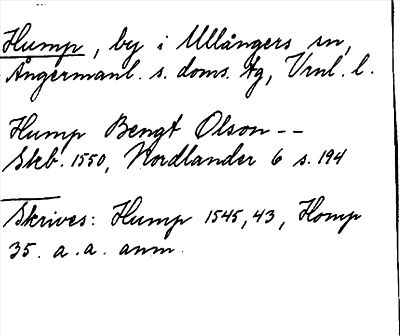 Hump, by i Ullångers sn,
Ångermanl. s. doms. tg, Vrnl. l.
Hump Bengt Olson --
Skb. 1550, Nordlander 6 s. 194
Skrives: Hump 1545, 43, Homp
35. a. a. anm.